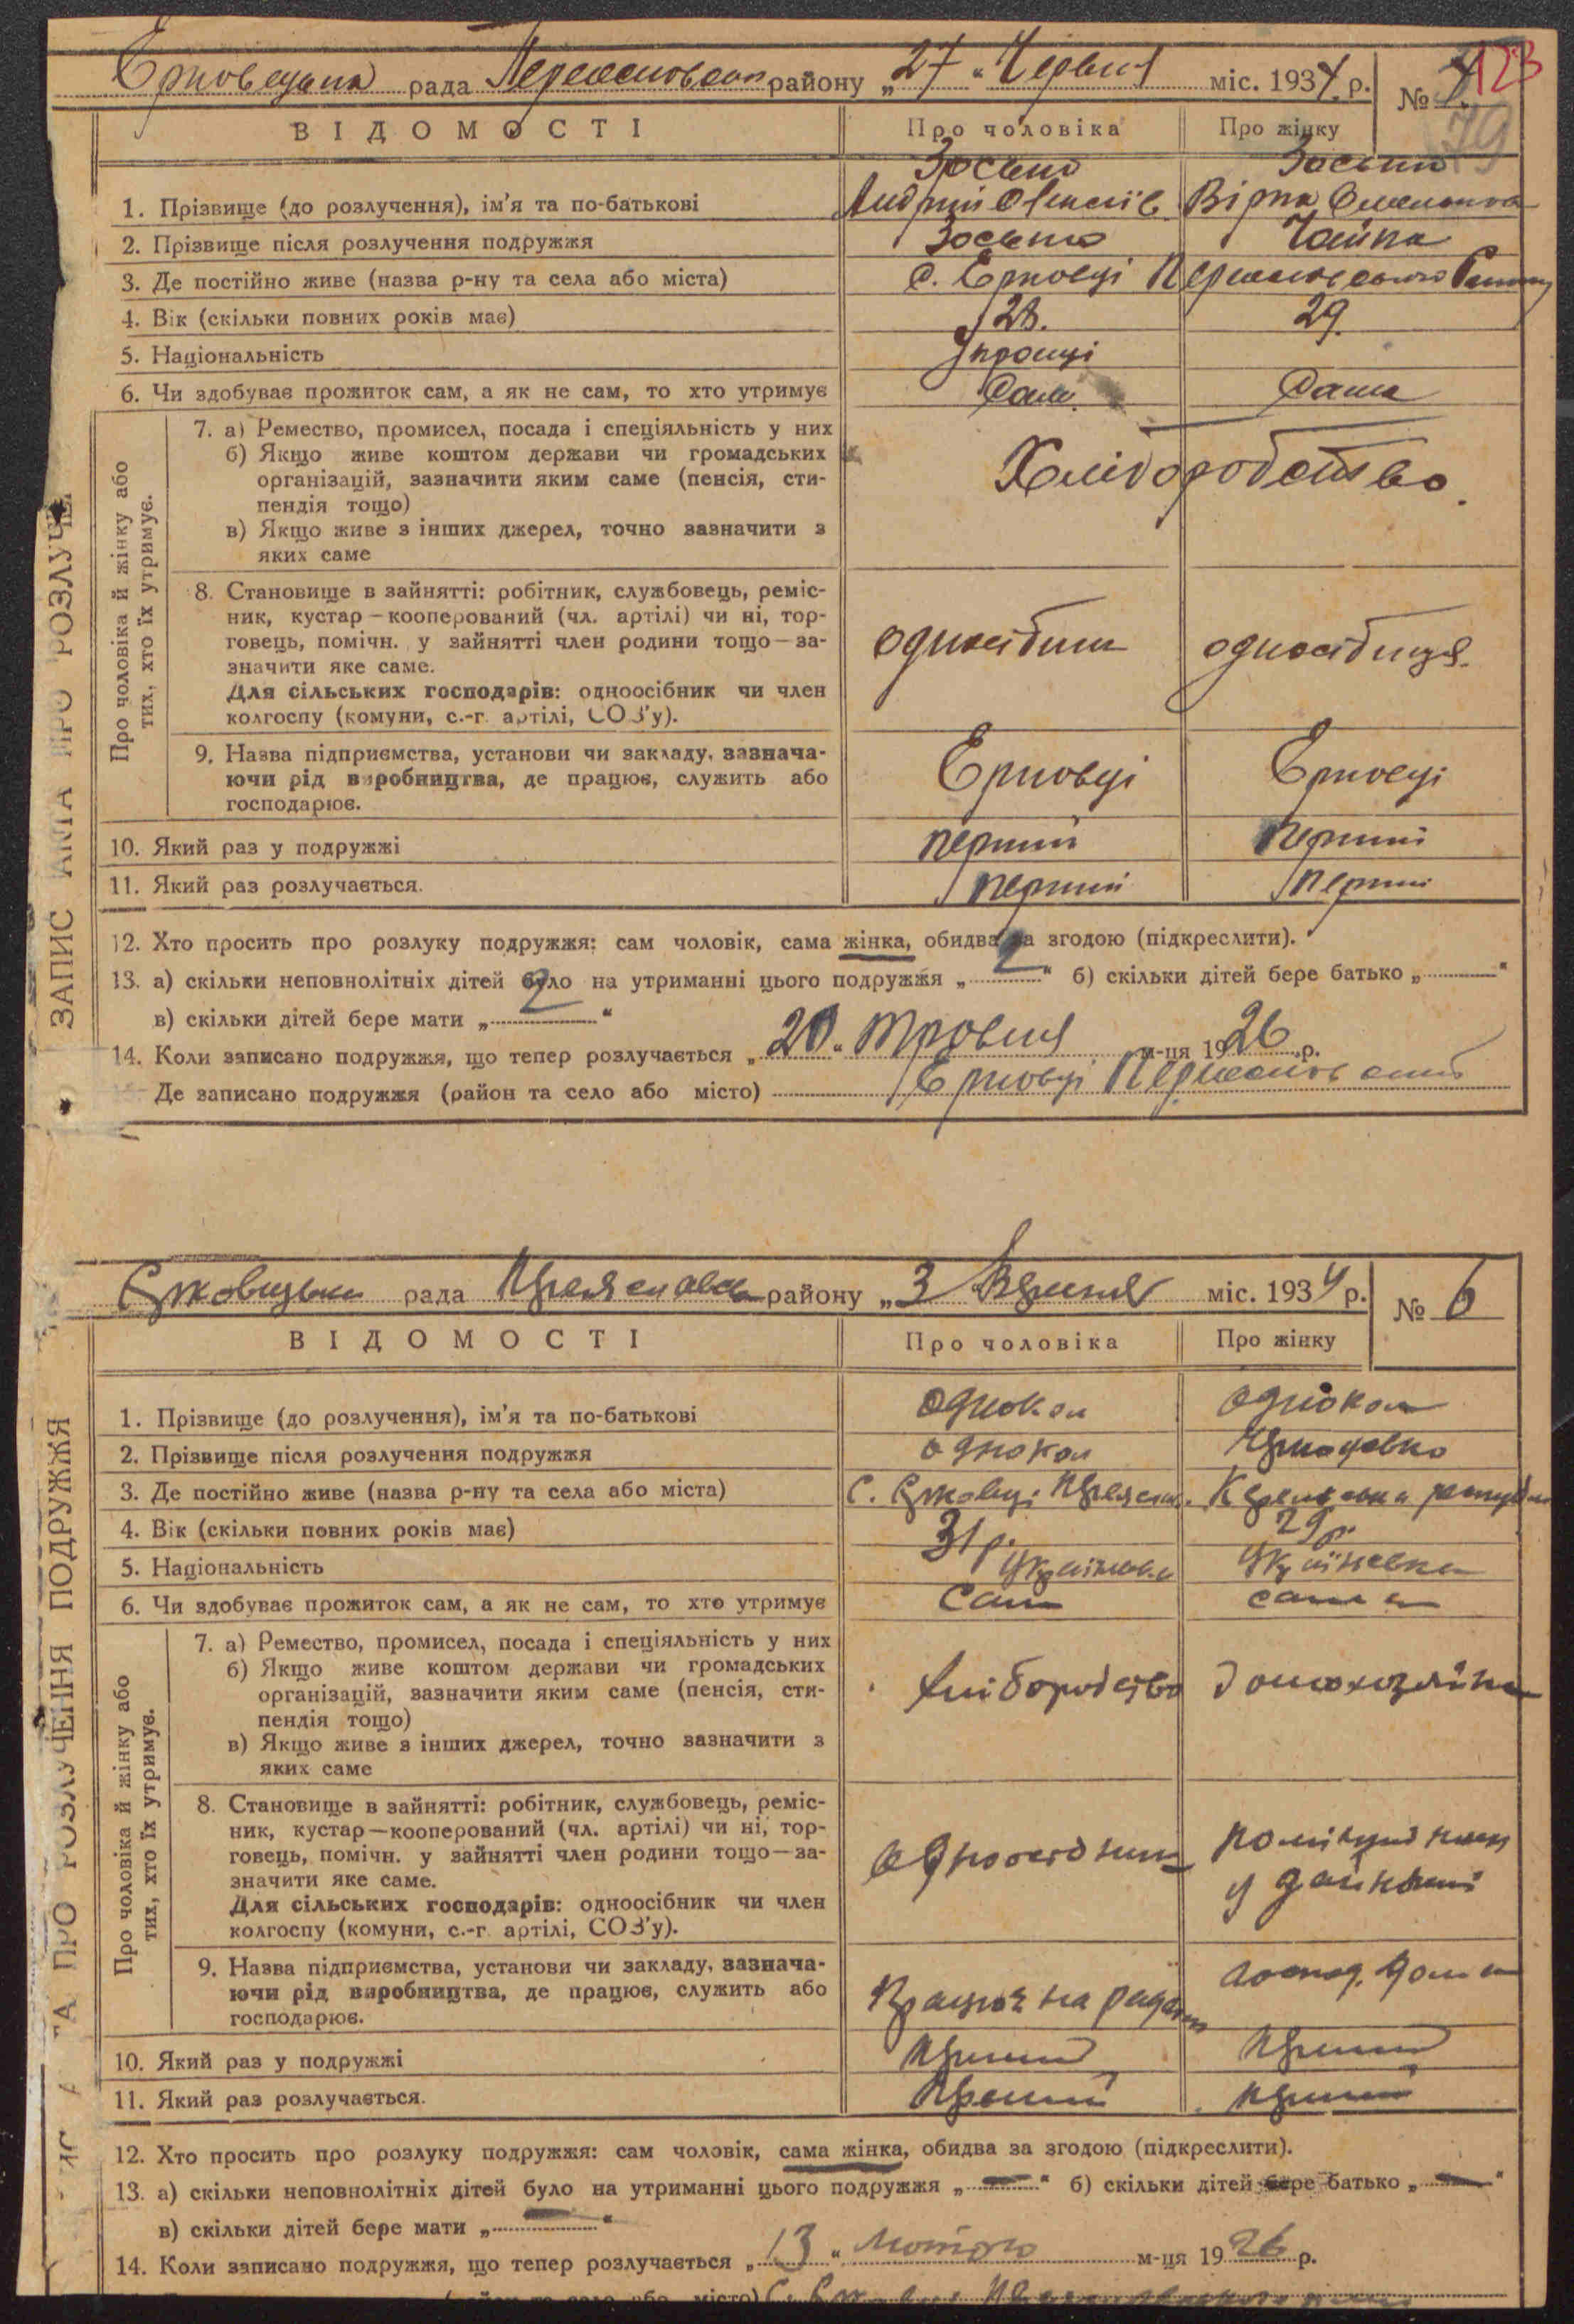 рада району „27“ Червня міс. 1934 р. № 123
79
ВІДОМОСТІ Про чоловіка Про жінку
Зосько
1. Прізвище (до розлучення), ім'я та по-батькові
2. Прізвище після розлучення подружжя Чайка
3. Де постійно живе (назва р-ну та села або міста) с.
4. Вік (скільки повних років має) 28. 29.
5. Національність
6. Чи здобуває прожиток сам, а як не сам, то хто утримує Сам. Сама
Про чоловіка й жінку або
тих, хто їх утримує.
7. а) Ремество, промисел, посада і спеціяльність у них
б) Якщо живе коштом держави чи громадських
організацій, зазначити яким саме (пенсія, сти-
пендія тощо)
Хліборобство.
в) Якщо живе з інших джерел, точно зазначити з
яких саме
8. Становище в зайнятті: робітник, службовець, реміс-
ник, кустар—кооперований (чл. артілі) чи ні, тор-
говець, помічн. у зайнятті член родини тощо—за-
значити яке саме.
Для сільських господарів: одноосібник чи член
колгоспу (комуни, с.-г. артілі, СОЗ'у).
9. Назва підприємства, установи чи закладу, зазнача-
ючи рід виробництва, де працює, служить або
господарює.
10. Який раз у подружжі перший перший
11. Який раз розлучається. перший перший
12. Хто просить про розлуку подружжя: сам чоловік, сама жінка, обидва за згодою (підкреслити).
13. а) скільки неповнолітніх дітей було на утриманні цього подружжя „2“ б) скільки дітей бере батько „ “
в) скільки дітей бере мати „2“
14. Коли записано подружжя, що тепер розлучається „20“ травня м-ця 1926 р.
Де записано подружжя (район та село або місто)
рада району „3 міс. 1934 р. № 6
ВІДОМОСТІ Про чоловіка Про жінку
1. Прізвище (до розлучення), ім'я та по-батькові Однокол Однокол
2. Прізвище після розлучення подружжя Однокол
3. Де постійно живе (назва р-ну та села або міста) с.
4. Вік (скільки повних років має) 31 р. 29 р.
5. Національність Українка
6. Чи здобуває прожиток сам, а як не сам, то хто утримує Сам сама
Про чоловіка й жінку або
тих, хто їх утримує.
7. а) Ремество, промисел, посада і спеціяльність у них
б) Якщо живе коштом держави чи громадських
організацій, зазначити яким саме (пенсія, сти-
пендія тощо)
в) Якщо живе з інших джерел, точно зазначити з
яких саме
8. Становище в зайнятті: робітник, службовець, реміс-
ник, кустар—кооперований (чл. артілі) чи ні, тор-
говець, помічн. у зайнятті член родини тощо—за-
значити яке саме.
у зайнятті
Для сільських господарів: одноосібник чи член
колгоспу (комуни, с.-г. артілі, СОЗ'у).
9. Назва підприємства, установи чи закладу, зазнача-
ючи рід виробництва, де працює, служить або
господарює.
10. Який раз у подружжі перший перший
11. Який раз розлучається. перший перший
12. Хто просить про розлуку подружжя: сам чоловік, сама жінка, обидва за згодою (підкреслити).
13. а) скільки неповнолітніх дітей було на утриманні цього подружжя „—“ б) скільки дітей бере батько „—“
в) скільки дітей бере мати „—“
14. Коли записано подружжя, що тепер розлучається „13“ лютого м-ця 1926 р.